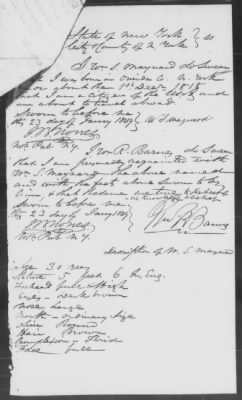 State of New York } ss
City & County of N. York }
I Wm S. Maynard do swear
that I was born in Oneida Co. N. York
on or about the 1st Decr 1818
that I am a citizen of the US & and
am about to travel abroad
Sworn to before me } W S Maynard
this 23 day of Janry 1849 }
Not. Pub. N.Y.
I Wm R. Barney do swear
that I am personally acquainted with
Wm S. Maynard the above named
and with the facts above sworn to by
him & that the same are true to the best
of my knowledge & belief
Sworn to before me }
this 23 day of Janry 1849 } Wm R Barney
Not. Pub. N.Y.
Description of W. S. Maynard
Age 30 years
Stature 5 feet 6 in Eng.
Forehead full & High
Eyes - Dark brown
Nose Large
Mouth - ordinary size
Chin Round
Hair Brown
Complexion - Florid
Face full